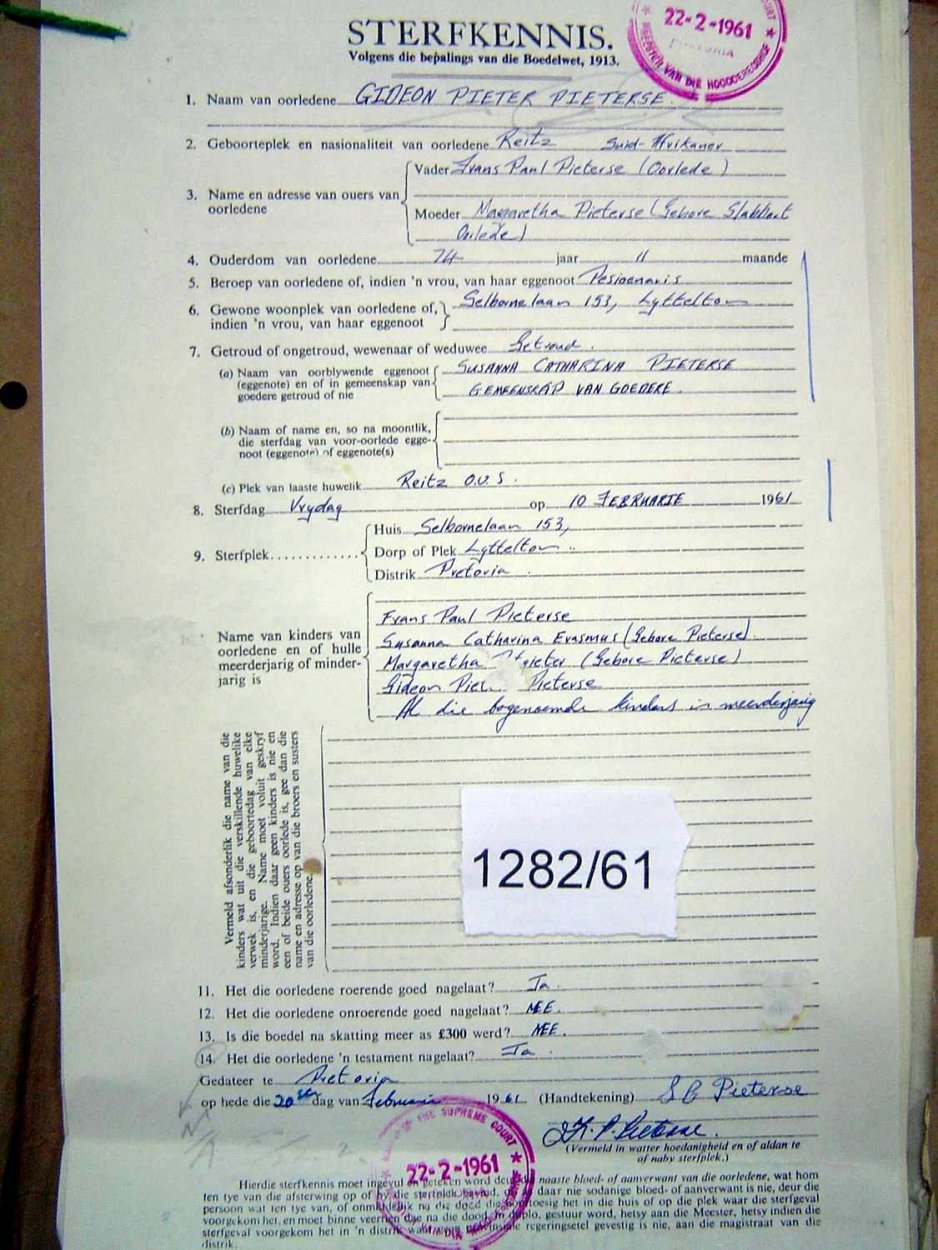 STERFKENNIS.
Volgens die bepalings van die Boedelwet, 1913.
22-2-1961
MEESTER VAN DIE HOOGGEREGSHOF
1. Naam van oorledene GIDEON PIETER PIETERSE
2. Geboorteplek en nasionaliteit van oorledene Reitz Suid-Afrikaner
3. Name en adresse van ouers van oorledene
Vader Frans Paul Pieterse (Oorlede)
Moeder Margaretha Pieterse (Gebore Slabbert
Oorlede)
4. Ouderdom van oorledene 74 jaar 11 maande
5. Beroep van oorledene of, indien 'n vrou, van haar eggenoot Pesioenaris
6. Gewone woonplek van oorledene of, indien 'n vrou, van haar eggenoot
Selbornelaan 153, Lyttelton
7. Getroud of ongetroud, wewenaar of weduwee Getroud.
(a) Naam van oorblywende eggenoot (eggenote) en of in gemeenskap van goedere getroud of nie
SUSANNA CATHARINA PIETERSE
GEMEENSKAP VAN GOEDERE.
(b) Naam of name en, so na moontlik, die sterfdag van voor-oorlede eggenoot (eggenote) of eggenote(s)
(c) Plek van laaste huwelik Reitz O.V.S.
8. Sterfdag Vrydag op 10 FEBRUARIE 1961
9. Sterfplek
Huis Selbornelaan 153,
Dorp of Plek Lyttelton
Distrik Pretoria
Name van kinders van oorledene en of hulle meerderjarig of minderjarig is
Frans Paul Pieterse
Susanna Catharina Erasmus (Gebore Pieterse)
Margaretha (Gebore Pieterse)
Gideon Pieterse
Al die bogenoemde kinders is meerderjarig
Vermeld afsonderlik die name van die
kinders wat uit die verskillende huwelike
verwek is, en die geboortedag van elke
minderjarige. Name moet voluit geskryf
word. Indien daar geen kinders is nie en
een of beide ouers oorlede is, gee dan die
name en adresse op van die broers en susters
van die oorledene.
1282/61
11. Het die oorledene roerende goed nagelaat? Ja.
12. Het die oorledene onroerende goed nagelaat? NEE.
13. Is die boedel na skatting meer as £300 werd? NEE.
14. Het die oorledene 'n testament nagelaat? Ja.
Gedateer te Pretoria
op hede die 20ste dag van Februarie 1961 (Handtekening) S C Pieterse
Pieterse.
(Vermeld in watter hoedanigheid en of aldan te
of naby sterfplek.)
SUPREME COURT
22-2-1961
Hierdie sterfkennis moet ingevul en geteken word deur die naaste bloed- of aanverwant van die oorledene, wat hom
ten tye van die afsterwing op of by die sterfplek bevind, daar nie sodanige bloed- of aanverwant is nie, deur die
persoon wat ten tye van, of onmiddellik na die dood die toesig het in die huis of op die plek waar die sterfgeval
voorgekom het, en moet binne veertien dae na die dood, in duplo, gestuur word, hetsy aan die Meester, hetsy indien die
sterfgeval voorgekom het in 'n distrik regeringsetel gevestig is nie, aan die magistraat van die
distrik.